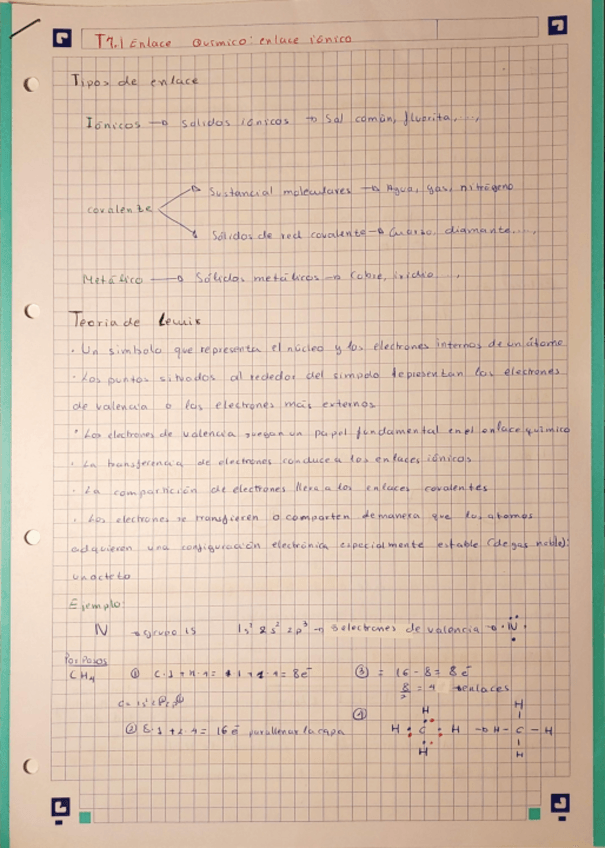 T7.1 Enlace Químico: enlace iónico
Tipos de enlace
Iónicos → solidos iónicos → Sal común, fluorita, ...,
covalente
Sustancial moleculares → Agua, gas, nitrógeno
Sólidos de red covalente → Cuarzo, diamante, ...,
Metálico → Sólidos metálicos → Cobre, iridio, ...,
Teoria de Lewis
· Un simbolo que representa el núcleo y los electrones internos de un átomo
· Los puntos situados al rededor del simpolo representan los electrones
de valencia o los electrones más externos
· Los electrones de valencia juegan un papel fundamental en el enlace químico
· La transferencia de electrones conduce a los enlaces iónicos
· La compartición de electrones lleva a los enlaces covalentes
· Los electrones se transfieren o comparten de manera que los atomos
adquieren una configuración electrónica especialmente estable (de gas noble):
un octeto
Ejemplo:
N → grupo 15 1s² 2s² 2p³ → electrones de valencia → ·N·
Por Pasos
CH₄
① = 8e⁻
③ = 16 - 8 = 8e⁻
8/2 = 4 enlaces
② 8·1 + 2·4 = 16 e⁻ para llenar la capa
④
H
H : C : H → H - C - H
H
H
H